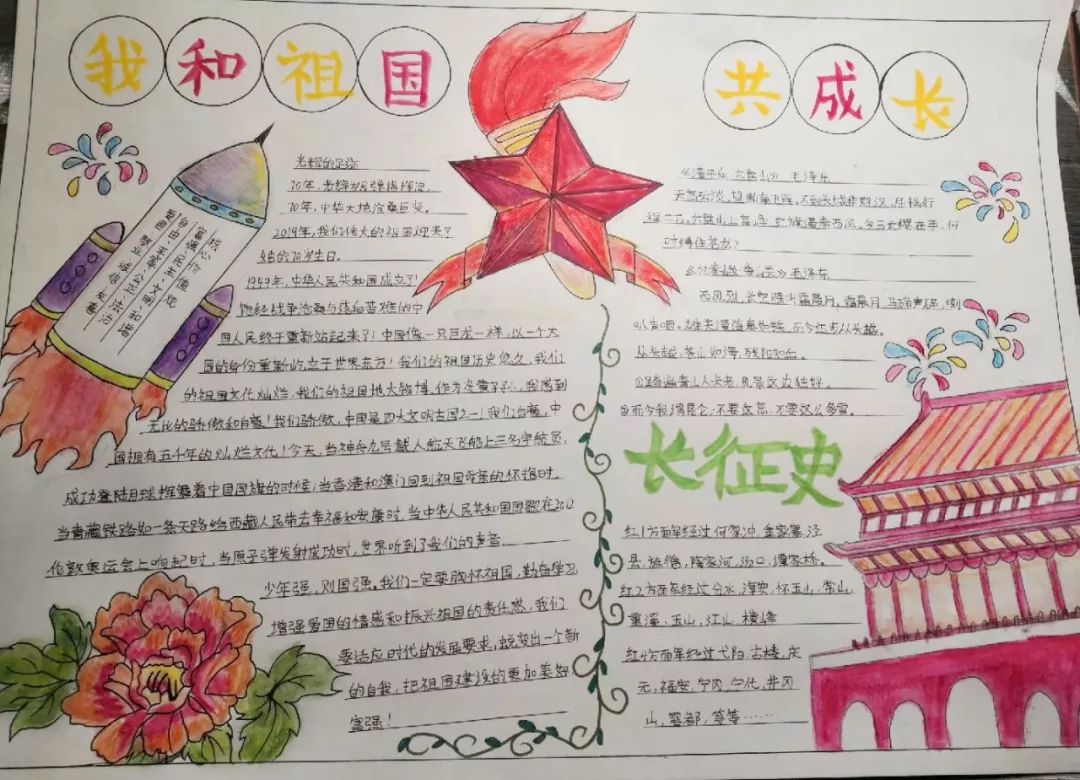 我和祖国
共成长
光辉的足迹
70年,光辉岁月弹指挥间,
70年,中华大地沧桑巨变。
2019年,我们伟大的祖国迎来了
她的70岁生日。
1949年,中华人民共和国成立了!
饱经战争沧桑与落后苦难的中
国人民终于重新站起来了!中国像一只巨龙一样,以一个大
国的身份重新屹立于世界东方!我们的祖国历史悠久,我们
的祖国文化灿烂,我们的祖国地大物博,作为炎黄子孙,我感到
无比的骄傲和自豪!我们骄傲,中国是四大文明古国之一!我们自豪,中
国拥有五千年的灿烂文化!今天,当神舟九号载人航天飞船上三名宇航员,
成功登陆月球挥舞着中国国旗的时候;当香港和澳门回到祖国母亲的怀抱时,
当青藏铁路如一条天路给西藏人民带去幸福和安康时,当中华人民共和国国歌在2012
伦敦奥运会上响起时,当原子弹发射成功时,世界听到了我们的声音。
少年强,则国强。我们一定要胸怀祖国,勤奋学习
增强爱国的情感和振兴祖国的责任感,我们
要适应时代的发展要求,蜕变出一个新
的自我,把祖国建设的更加美好
富强!
核心价值观
富强 民主 文明 和谐
自由 平等 公正 法治
爱国 敬业 诚信 友善
《清平乐·六盘山》毛泽东
天高云淡,望断南飞雁,不到长城非好汉,屈指行
程二万,六盘山上高峰,红旗漫卷西风。今日长缨在手,何
时缚住苍龙?
《忆秦娥·娄山关》毛泽东
西风烈,长空雁叫霜晨月。霜晨月,马蹄声碎,喇
叭声咽。雄关漫道真如铁,而今迈步从头越。
从头越,苍山如海,残阳如血。
踏遍青山人未老,风景这边独好。
而今我谓昆仑:不要这高,不要这么多雪。
长征史
县,旌德,陶家河,汤口,谭家桥。
红2方面军经过分水,淳安,怀玉山,常山,
童溪,玉山,江山,横峰
红4方面军经过弋阳,古楼,庆
元,福安,宁冈,宁化,井冈
山,雩都,等等……